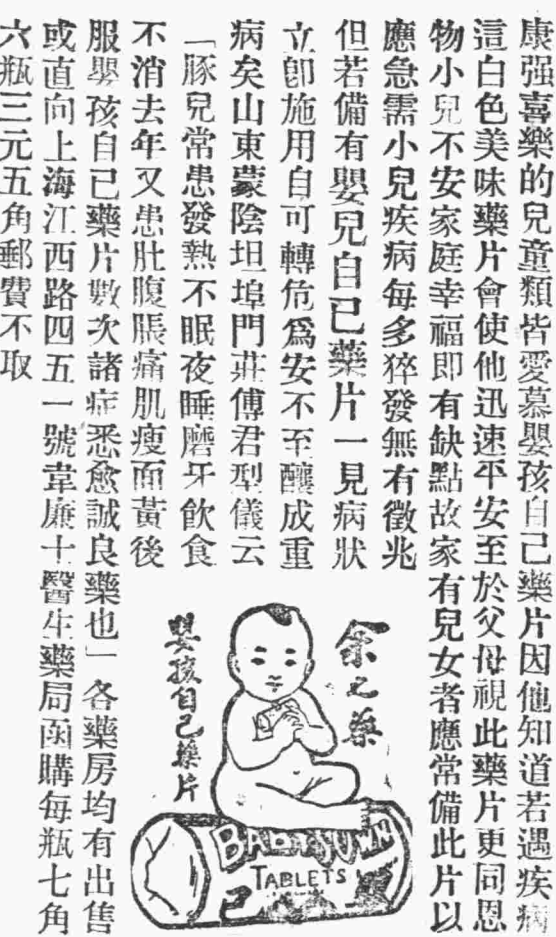 康强喜樂的兒童類皆愛慕嬰孩自己藥片因他知道若遇疾病
這白色美味藥片會使他迅速平安至於父母視此藥片更同恩
物小兒不安家庭幸福即有缺點故家有兒女者應常備此片以
應急需小兒疾病每多猝發無有徵兆
但若備有嬰兒自己藥片一見病狀
立卽施用自可轉危爲安不至釀成重
病矣山東蒙陰坦埠門莊傅君型儀云
「豚兒常患發熱不眠夜睡磨牙飮食
不消去年又患肚腹脹痛肌瘦面黃後
服嬰孩自己藥片數次諸症悉愈誠良藥也」各藥房均有出售
或直向上海江西路四五一號韋廉士醫生藥局函購每瓶七角
六瓶三元五角郵費不取
余之藥
嬰孩自己藥片
BABY'S OWN
TABLETS
己